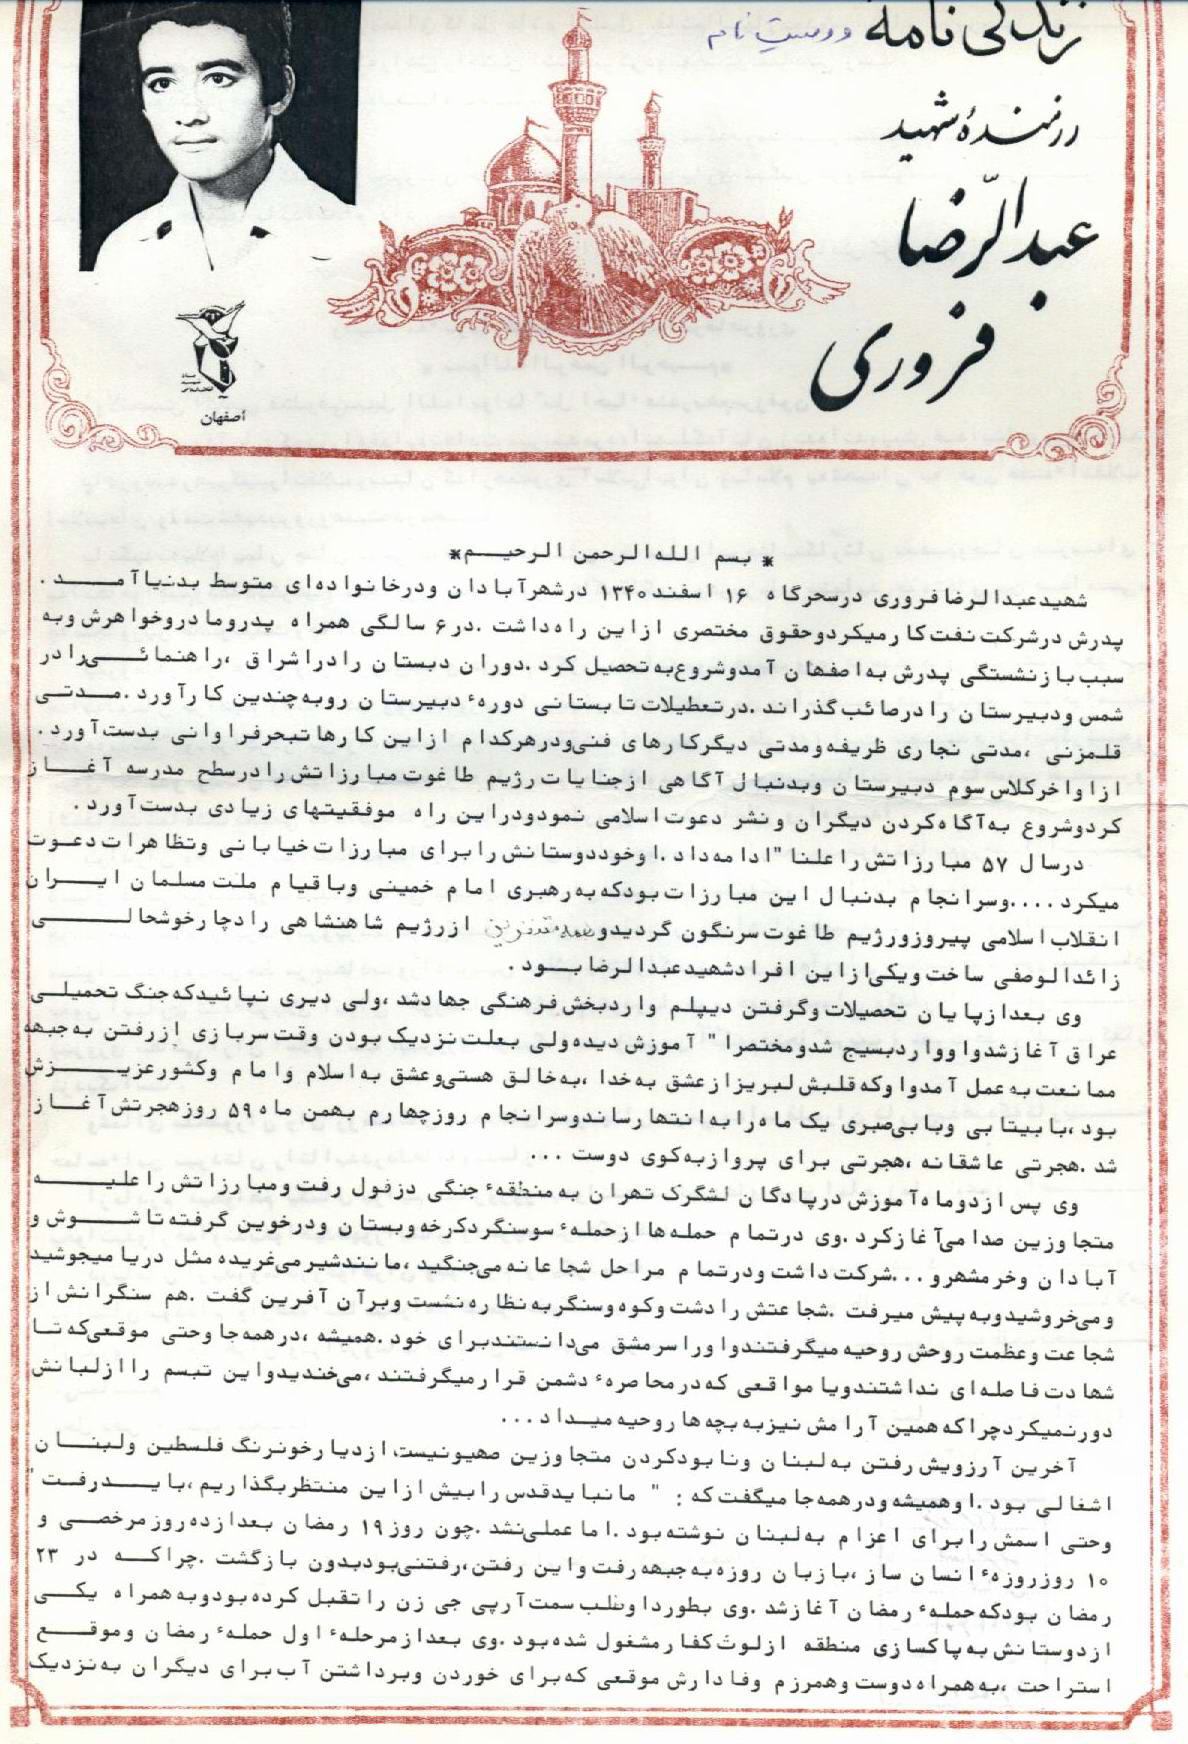 زندگی نامه و وصیت نامه
رزمندهٔ شهید
عبدالرّضا
فروری
اصفهان
* بسم الله الرحمن الرحیم *
شهید عبدالرضا فروری در سحرگاه ۱۶ اسفند ۱۳۴۰ در شهر آبادان و در خانواده‌ای متوسط بدنیا آمد .
پدرش در شرکت نفت کار میکرد و حقوق مختصری از این راه داشت . در ۶ سالگی همراه پدر و مادر و خواهرش و به
سبب بازنشستگی پدرش به اصفهان آمد و شروع به تحصیل کرد . دوران دبستان را در اشراق ، راهنمائی را در
شمس و دبیرستان را در صائب گذراند . در تعطیلات تابستانی دورهٔ دبیرستان رو به چندین کار آورد . مدتی
قلمزنی ، مدتی نجاری ظریفه و مدتی دیگر کارهای فنی و در هر کدام از این کارها تبحر فراوانی بدست آورد .
از اواخر کلاس سوم دبیرستان و بدنبال آگاهی از جنایات رژیم طاغوت مبارزاتش را در سطح مدرسه آغاز
کرد و شروع به آگاه کردن دیگران و نشر دعوت اسلامی نمود و در این راه موفقیتهای زیادی بدست آورد .
در سال ۵۷ مبارزاتش را علنا" ادامه داد . او خود دوستانش را برای مبارزات خیابانی و تظاهرات دعوت
میکرد .... و سرانجام بدنبال این مبارزات بود که به رهبری امام خمینی و با قیام ملت مسلمان ایران
انقلاب اسلامی پیروز و رژیم طاغوت سرنگون گردید و همه متنفرین از رژیم شاهنشاهی را دچار خوشحالی
زائدالوصفی ساخت و یکی از این افراد شهید عبدالرضا بود .
وی بعد از پایان تحصیلات و گرفتن دیپلم وارد بخش فرهنگی جهاد شد ، ولی دیری نپائید که جنگ تحمیلی
عراق آغاز شد و او وارد بسیج شد و مختصرا" آموزش دیده ولی بعلت نزدیک بودن وقت سربازی از رفتن به جبهه
ممانعت به عمل آمد و او که قلبش لبریز از عشق به خدا ، به خالق هستی و عشق به اسلام و امام و کشور عزیزش
بود ، با بیتابی و با بی‌صبری یک ماه را به انتها رساند و سرانجام روز چهارم بهمن ماه ۵۹ روز هجرتش آغاز
شد . هجرتی عاشقانه ، هجرتی برای پرواز به کوی دوست ...
وی پس از دو ماه آموزش در پادگان لشگرک تهران به منطقهٔ جنگی دزفول رفت و مبارزاتش را علیه
متجاوزین صدامی آغاز کرد . وی در تمام حمله‌ها از حملهٔ سوسنگرد کرخه و بستان و در خوین گرفته تا شوش و
آبادان و خرمشهر و ... شرکت داشت و در تمام مراحل شجاعانه می‌جنگید ، مانند شیر می‌غریده مثل دریا میجوشید
و می‌خروشید و به پیش میرفت . شجاعتش را دشت و کوه و سنگر به نظاره نشست و بر آن آفرین گفت . هم سنگرانش از
شجاعت و عظمت روحش روحیه میگرفتند و او را سرمشق می‌دانستند برای خود . همیشه ، در همه جا و حتی موقعی که تا
شهادت فاصله‌ای نداشتند و یا مواقعی که در محاصرهٔ دشمن قرار میگرفتند ، می‌خندید و این تبسم را از لبانش
دور نمیکرد چرا که همین آرامش نیز به بچه‌ها روحیه میداد ...
آخرین آرزویش رفتن به لبنان و نابود کردن متجاوزین صهیونیست از دیار خونرنگ فلسطین و لبنان
اشغالی بود . او همیشه و در همه جا میگفت که : " ما نباید قدس را بیش از این منتظر بگذاریم ، باید رفت "
و حتی اسمش را برای اعزام به لبنان نوشته بود . اما عملی نشد . چون روز ۱۹ رمضان بعد از ده روز مرخصی و
۱۰ روز روزهٔ انسان ساز ، با زبان روزه به جبهه رفت و این رفتن ، رفتنی بود بدون بازگشت . چرا که در ۲۳
رمضان بود که حملهٔ رمضان آغاز شد . وی بطور داوطلب سمت آرپی جی زن را تقبل کرده بود و به همراه یکی
از دوستانش به پاکسازی منطقه از لوث کفار مشغول شده بود . وی بعد از مرحلهٔ اول حملهٔ رمضان و موقع
استراحت ، به همراه دوست و همرزم وفادارش موقعی که برای خوردن و برداشتن آب برای دیگران به نزدیک